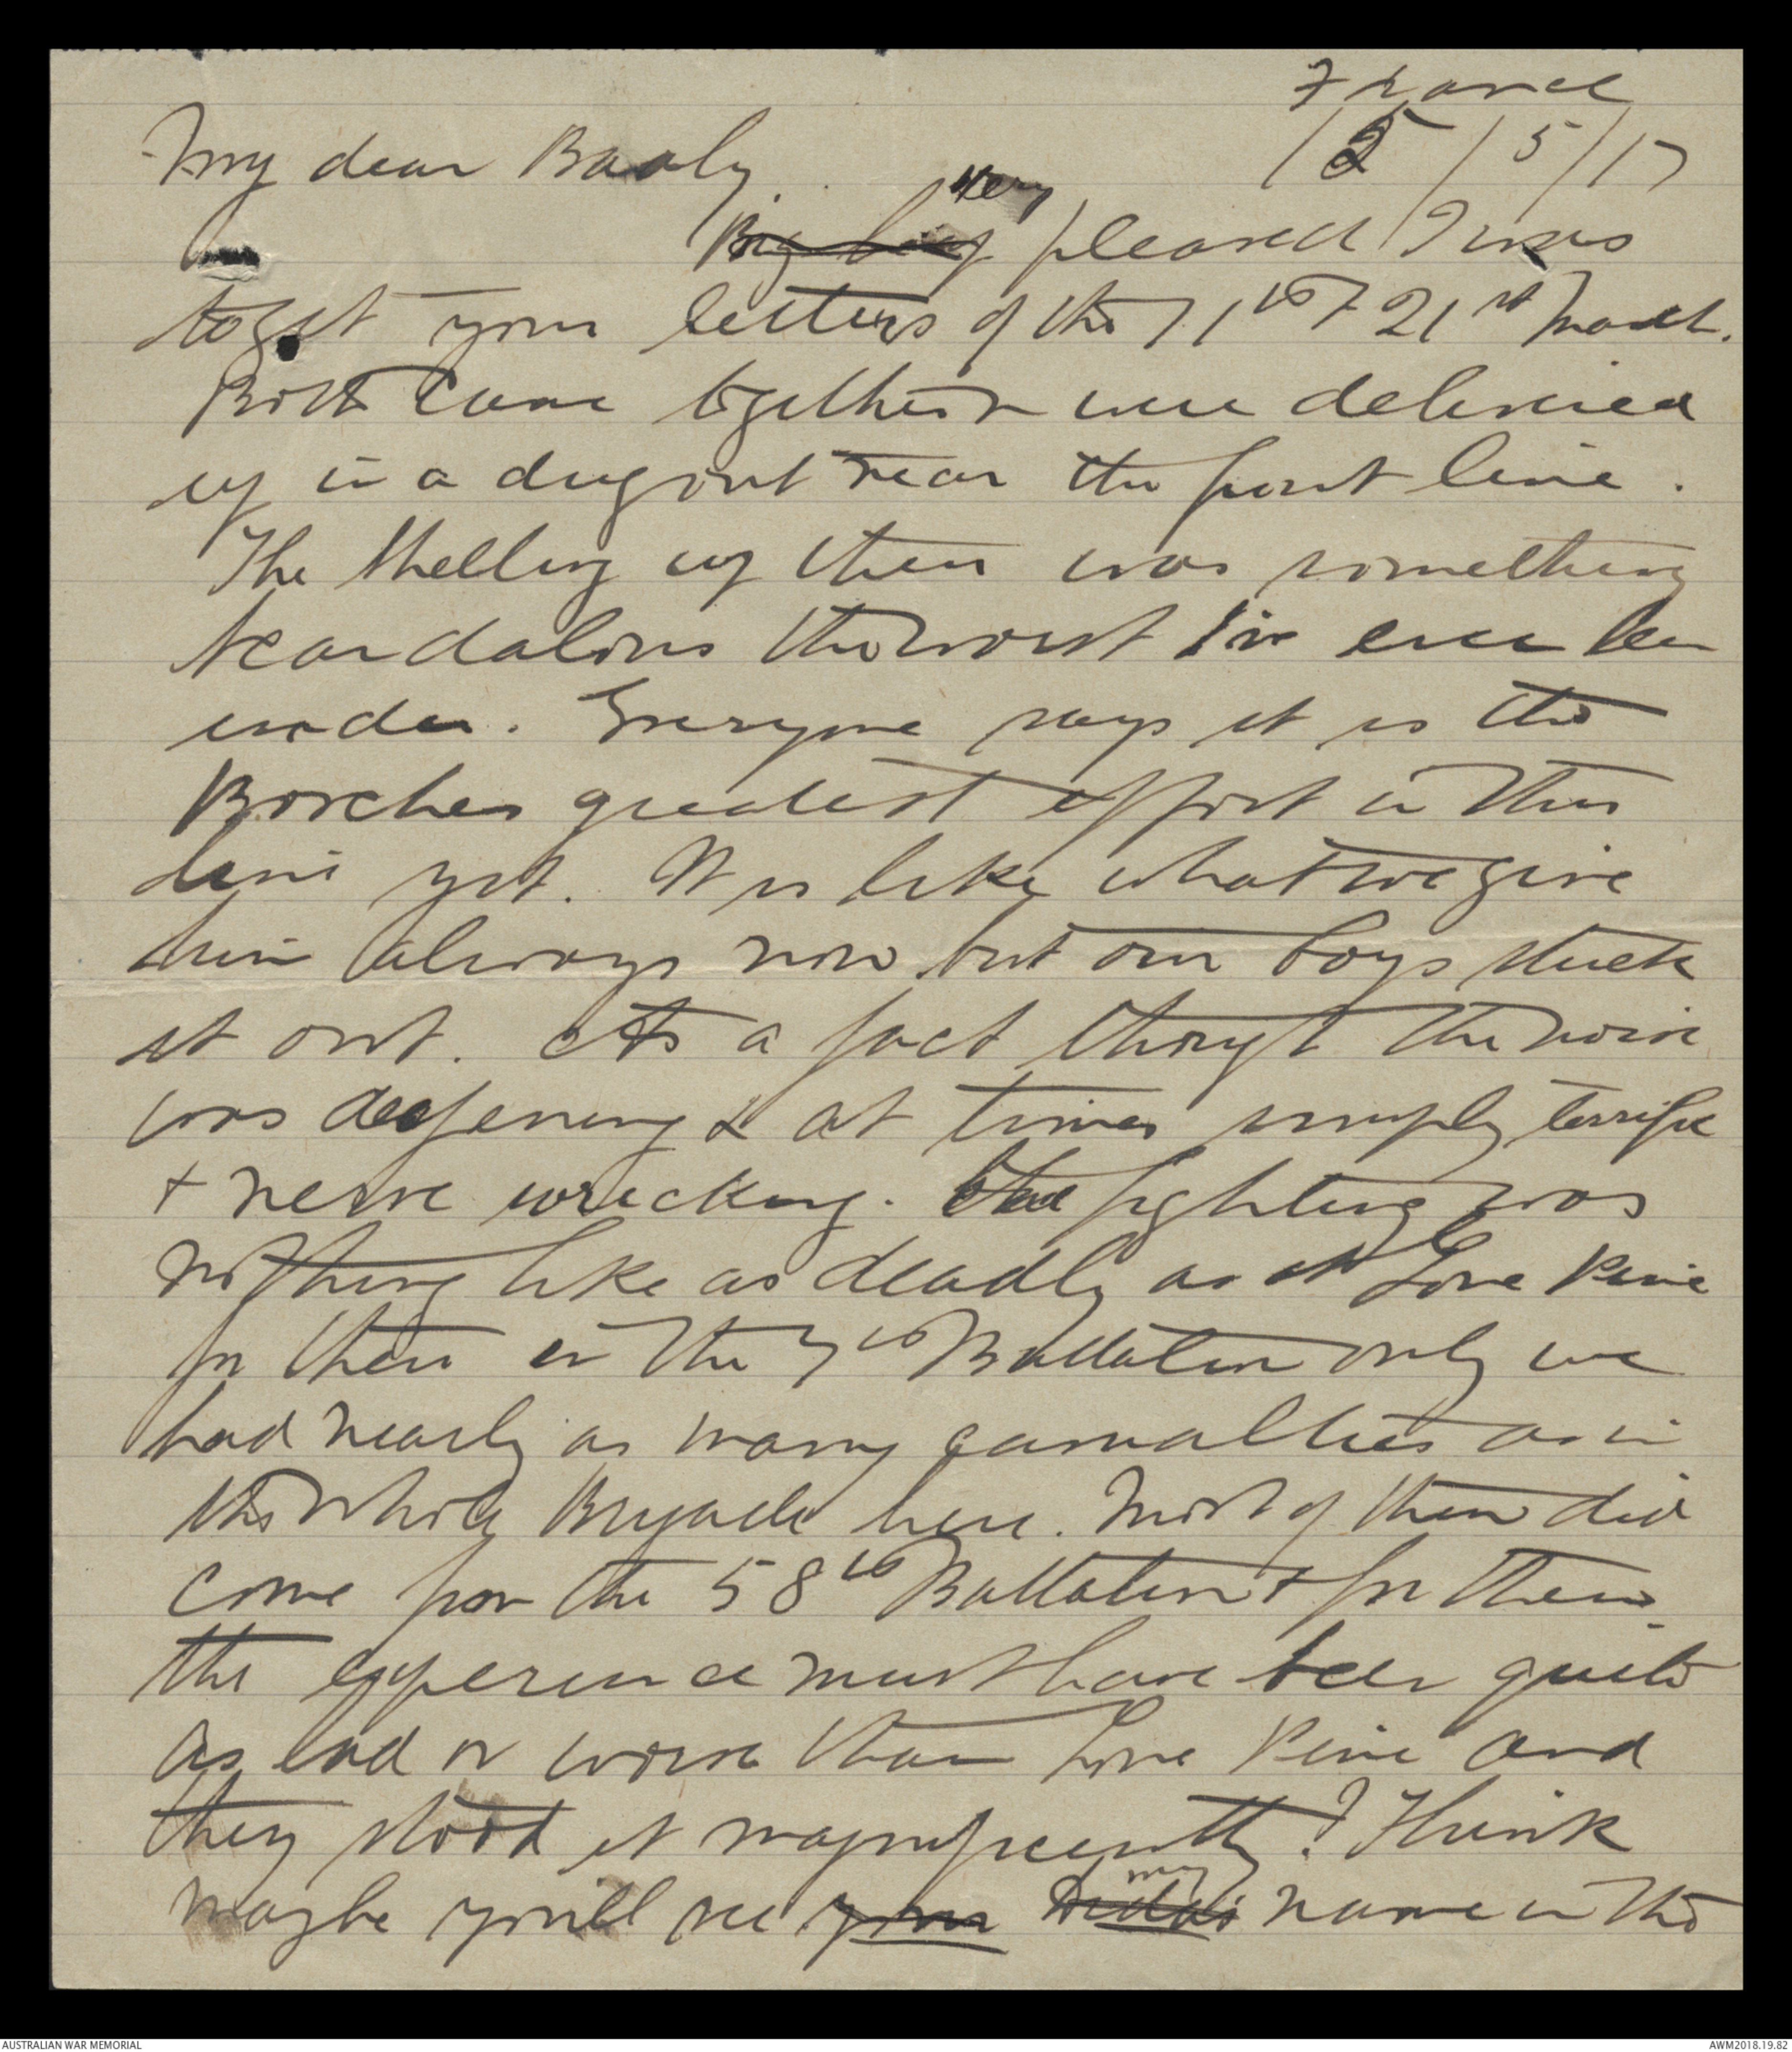 France
15/5/17
My dear Baaly
Big big very pleased I was
to get your letters of the 11th & 21st March.
Both came together & were delivered
up in a dugout near the front line.
The shelling up there was something
scandalous the worst I've ever been
under. Everyone says it is the
Bosches greatest effort in this
line yet. It is like what we give
him always now but our boys stuck
it out. Its a fact though the noise
was deafening & at times simply terrific
& nerve wracking. The fighting was
nothing like as deadly as at Lone Pine
for there in the 7th Battalion only we
had nearly as many casualties as in
the whole Brigade here. Most of them did
come from the 58th Battalion & for them
the experience must have been quite
as bad or worse than Lone Pine and
they stood it magnificently! I think
maybe you'll see your Dida's my name in the
AUSTRALIAN WAR MEMORIAL
AWM2018.19.82